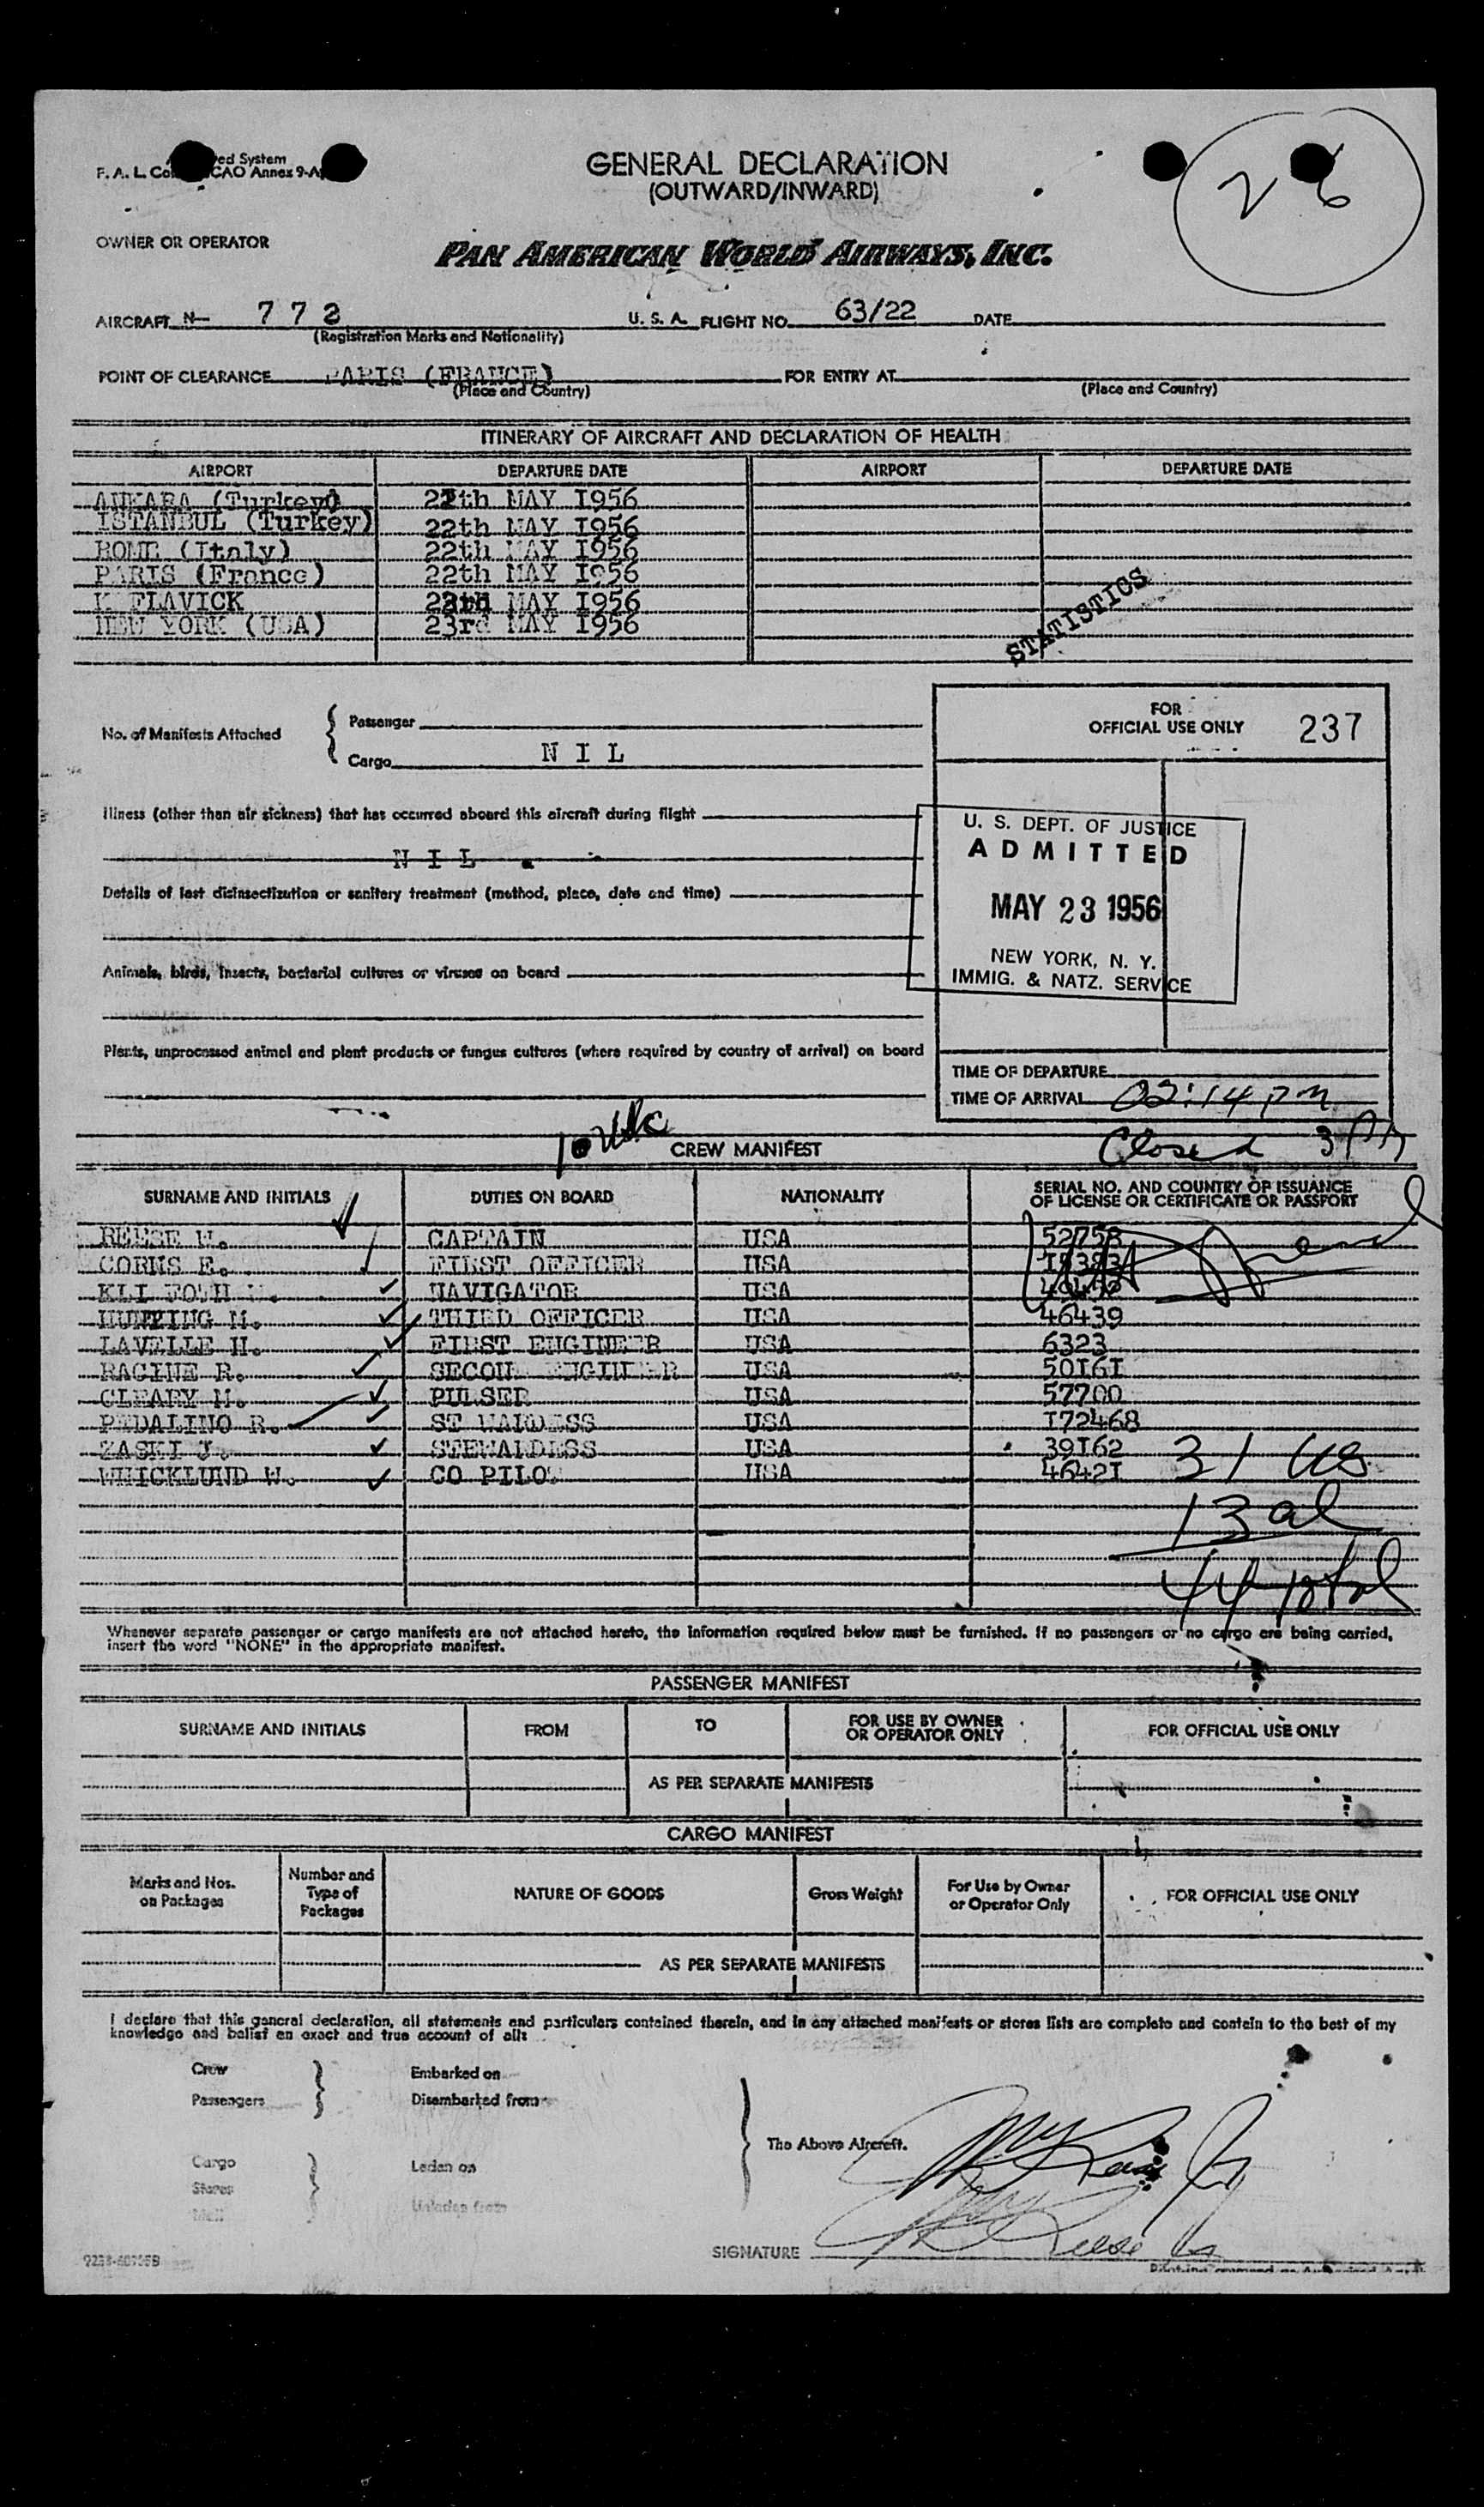 GENERAL DECLARATION
(OUTWARD/INWARD)
ed System
F. A. L. CAO Annex 9-A
26
OWNER OR OPERATOR
PAN AMERICAN WORLD AIRWAYS, INC.
AIRCRAFT N- 772 U. S. A. FLIGHT NO. 63/22 DATE
(Registration Marks and Nationality)
POINT OF CLEARANCE PARIS (FRANCE) FOR ENTRY AT
(Place and Country) (Place and Country)
ITINERARY OF AIRCRAFT AND DECLARATION OF HEALTH
AIRPORT DEPARTURE DATE AIRPORT DEPARTURE DATE
ANKARA (Turkey) th MAY I956
ISTANBUL (Turkey) 22th MAY I956
ROME (Italy) 22th MAY I956
PARIS (France) 22th MAY I956
K FLAVICK MAY I956
NEW YORK (USA) 23rd MAY I956
STATISTICS
No. of Manifests Attached
Passenger
Cargo N I L
FOR
OFFICIAL USE ONLY 237
Illness (other than air sickness) that has occurred aboard this aircraft during flight
N I L
Details of last disinsectization or sanitary treatment (method, place, date and time)
Animals, birds, insects, bacterial cultures or viruses on board
Plants, unprocessed animal and plant products or fungus cultures (where required by country of arrival) on board
U. S. DEPT. OF JUSTICE
ADMITTED
MAY 23 1956
NEW YORK, N. Y.
IMMIG. & NATZ. SERVICE
TIME OF DEPARTURE
TIME OF ARRIVAL 02:14 pm
Closed 3 PM
10
CREW MANIFEST
SURNAME AND INITIALS DUTIES ON BOARD NATIONALITY SERIAL NO. AND COUNTRY OF ISSUANCE
OF LICENSE OR CERTIFICATE OR PASSPORT
REESE W. CAPTAIN USA 52758
CORNS E. FIRST OFFICER USA
NAVIGATOR USA
M. THIRD OFFICER USA 46439
LAVELLE H. FIRST ENGINEER USA 6323
RACINE R. SECOND ENGINEER USA 50I6I
CLEARY M. PURSER USA 57700
PEDALINO R. STEWARDESS USA I72468
ZASKI J. STEWARDESS USA 39I62
WHICKLUND W. CO PILOT USA 4642I
31 US
13 al
44 total
Whenever separate passenger or cargo manifests are not attached hereto, the information required below must be furnished. If no passengers or no cargo are being carried,
insert the word "NONE" in the appropriate manifest.
PASSENGER MANIFEST
SURNAME AND INITIALS FROM TO FOR USE BY OWNER
OR OPERATOR ONLY FOR OFFICIAL USE ONLY
AS PER SEPARATE MANIFESTS
CARGO MANIFEST
Marks and Nos.
on Packages
Number and
Type of
Packages
NATURE OF GOODS Gross Weight
For Use by Owner
or Operator Only
FOR OFFICIAL USE ONLY
AS PER SEPARATE MANIFESTS
I declare that this general declaration, all statements and particulars contained therein, and in any attached manifests or stores lists are complete and contain to the best of my
knowledge and belief an exact and true account of all:
Crew Embarked on
Passengers Disembarked from
The Above Aircraft.
Cargo Laden on
Stores
Mail Unladen from
SIGNATURE